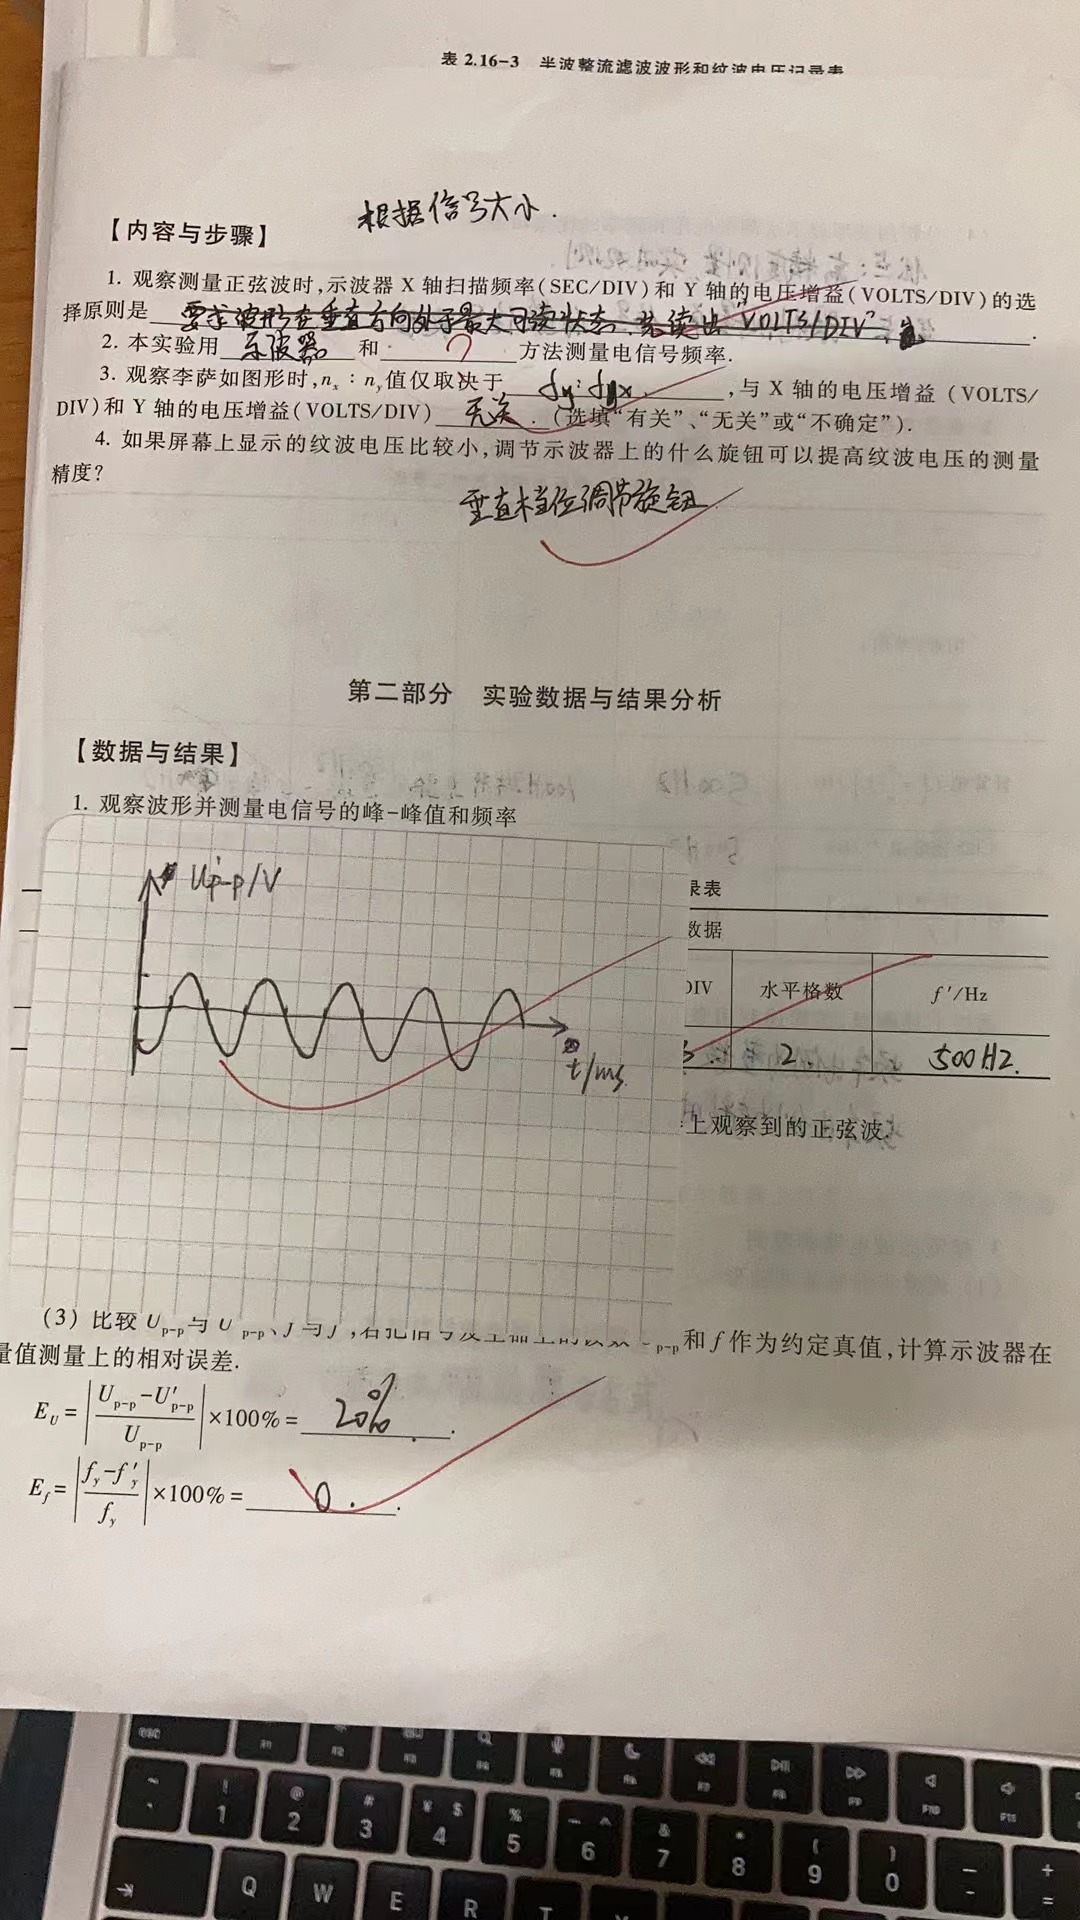 表 2.16-3 半波整流滤波波形和纹波电压记录表
根据信号大小.
【内容与步骤】
1. 观察测量正弦波时,示波器 X 轴扫描频率(SEC/DIV)和 Y 轴的电压增益(VOLTS/DIV)的选
择原则是 要求波形在垂直方向处于最大可读状态. 先读出"VOLTS/DIV" .
2. 本实验用 示波器 和 方法测量电信号频率.
3. 观察李萨如图形时,nₓ:nᵧ值仅取决于 fy:fx ,与 X 轴的电压增益 (VOLTS/
DIV)和 Y 轴的电压增益(VOLTS/DIV) 无关. (选填“有关”、“无关”或“不确定”).
4. 如果屏幕上显示的纹波电压比较小,调节示波器上的什么旋钮可以提高纹波电压的测量
精度?
垂直档位调节旋钮
第二部分 实验数据与结果分析
【数据与结果】
1. 观察波形并测量电信号的峰-峰值和频率
Up-p/V
t/ms
录表
数据
DIV 水平格数 f′/Hz
2. 500HZ.
上观察到的正弦波.
(3) 比较 Up-p与 U′p-p、f 与 f′,若把信号发生器上的读数 Up-p和 f 作为约定真值,计算示波器在
量值测量上的相对误差.
E_U = |(Up-p − U′p-p)/Up-p| ×100% = 20% .
E_f = |(fy − f′y)/fy| ×100% = 0. .
esc F1 F2 F3 F4 F5 F6 F7 F8 F9 F10 F11
~ ! 1 @ 2 # 3 ¥ $ 4 % 5 6 & 7 * 8 ( 9 ) 0 — - + =
Q W E R T Y